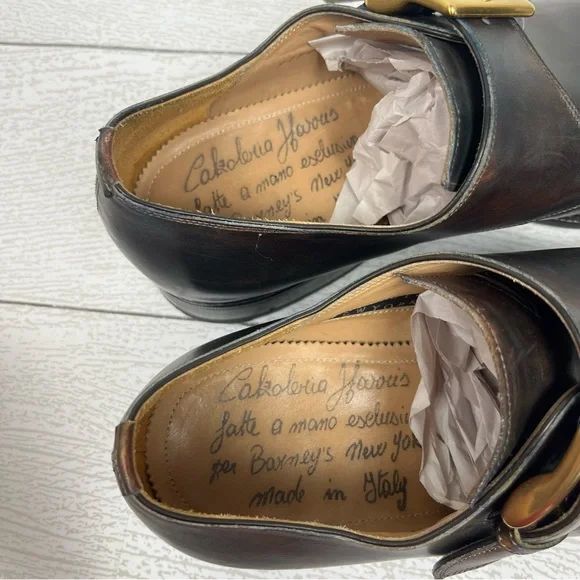 Calzoleria Harris
fatte a mano esclusiv
Barney's New Yo
made in
Calzoleria Harris
fatte a mano esclusiv
per Barney's New York
made in Italy